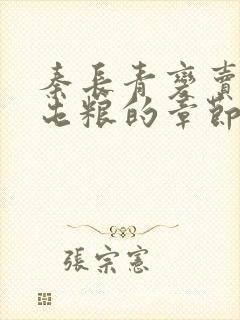 秦長青變賣
屯粮的章節
張宗憲